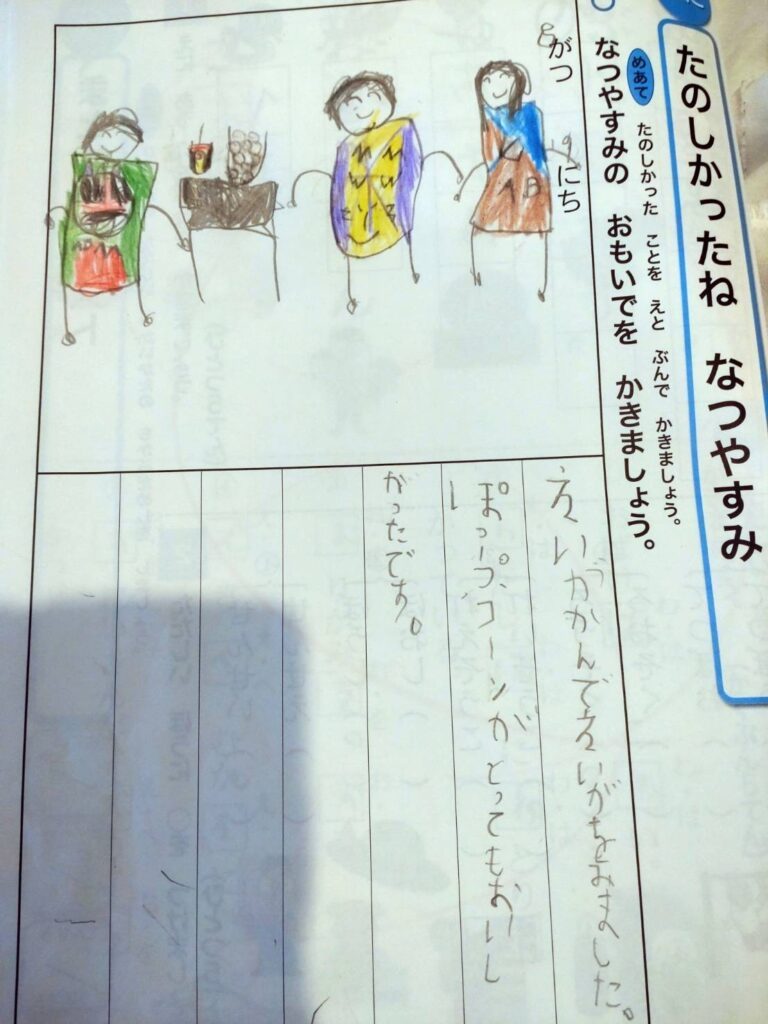 たのしかったね なつやすみ
めあて たのしかった ことを えと ぶんで かきましょう。
なつやすみの おもいでを かきましょう。
8がつ 19にち
えいがかんでえいがをみました。
ぽっぷコーンがとってもおいし
かったです。